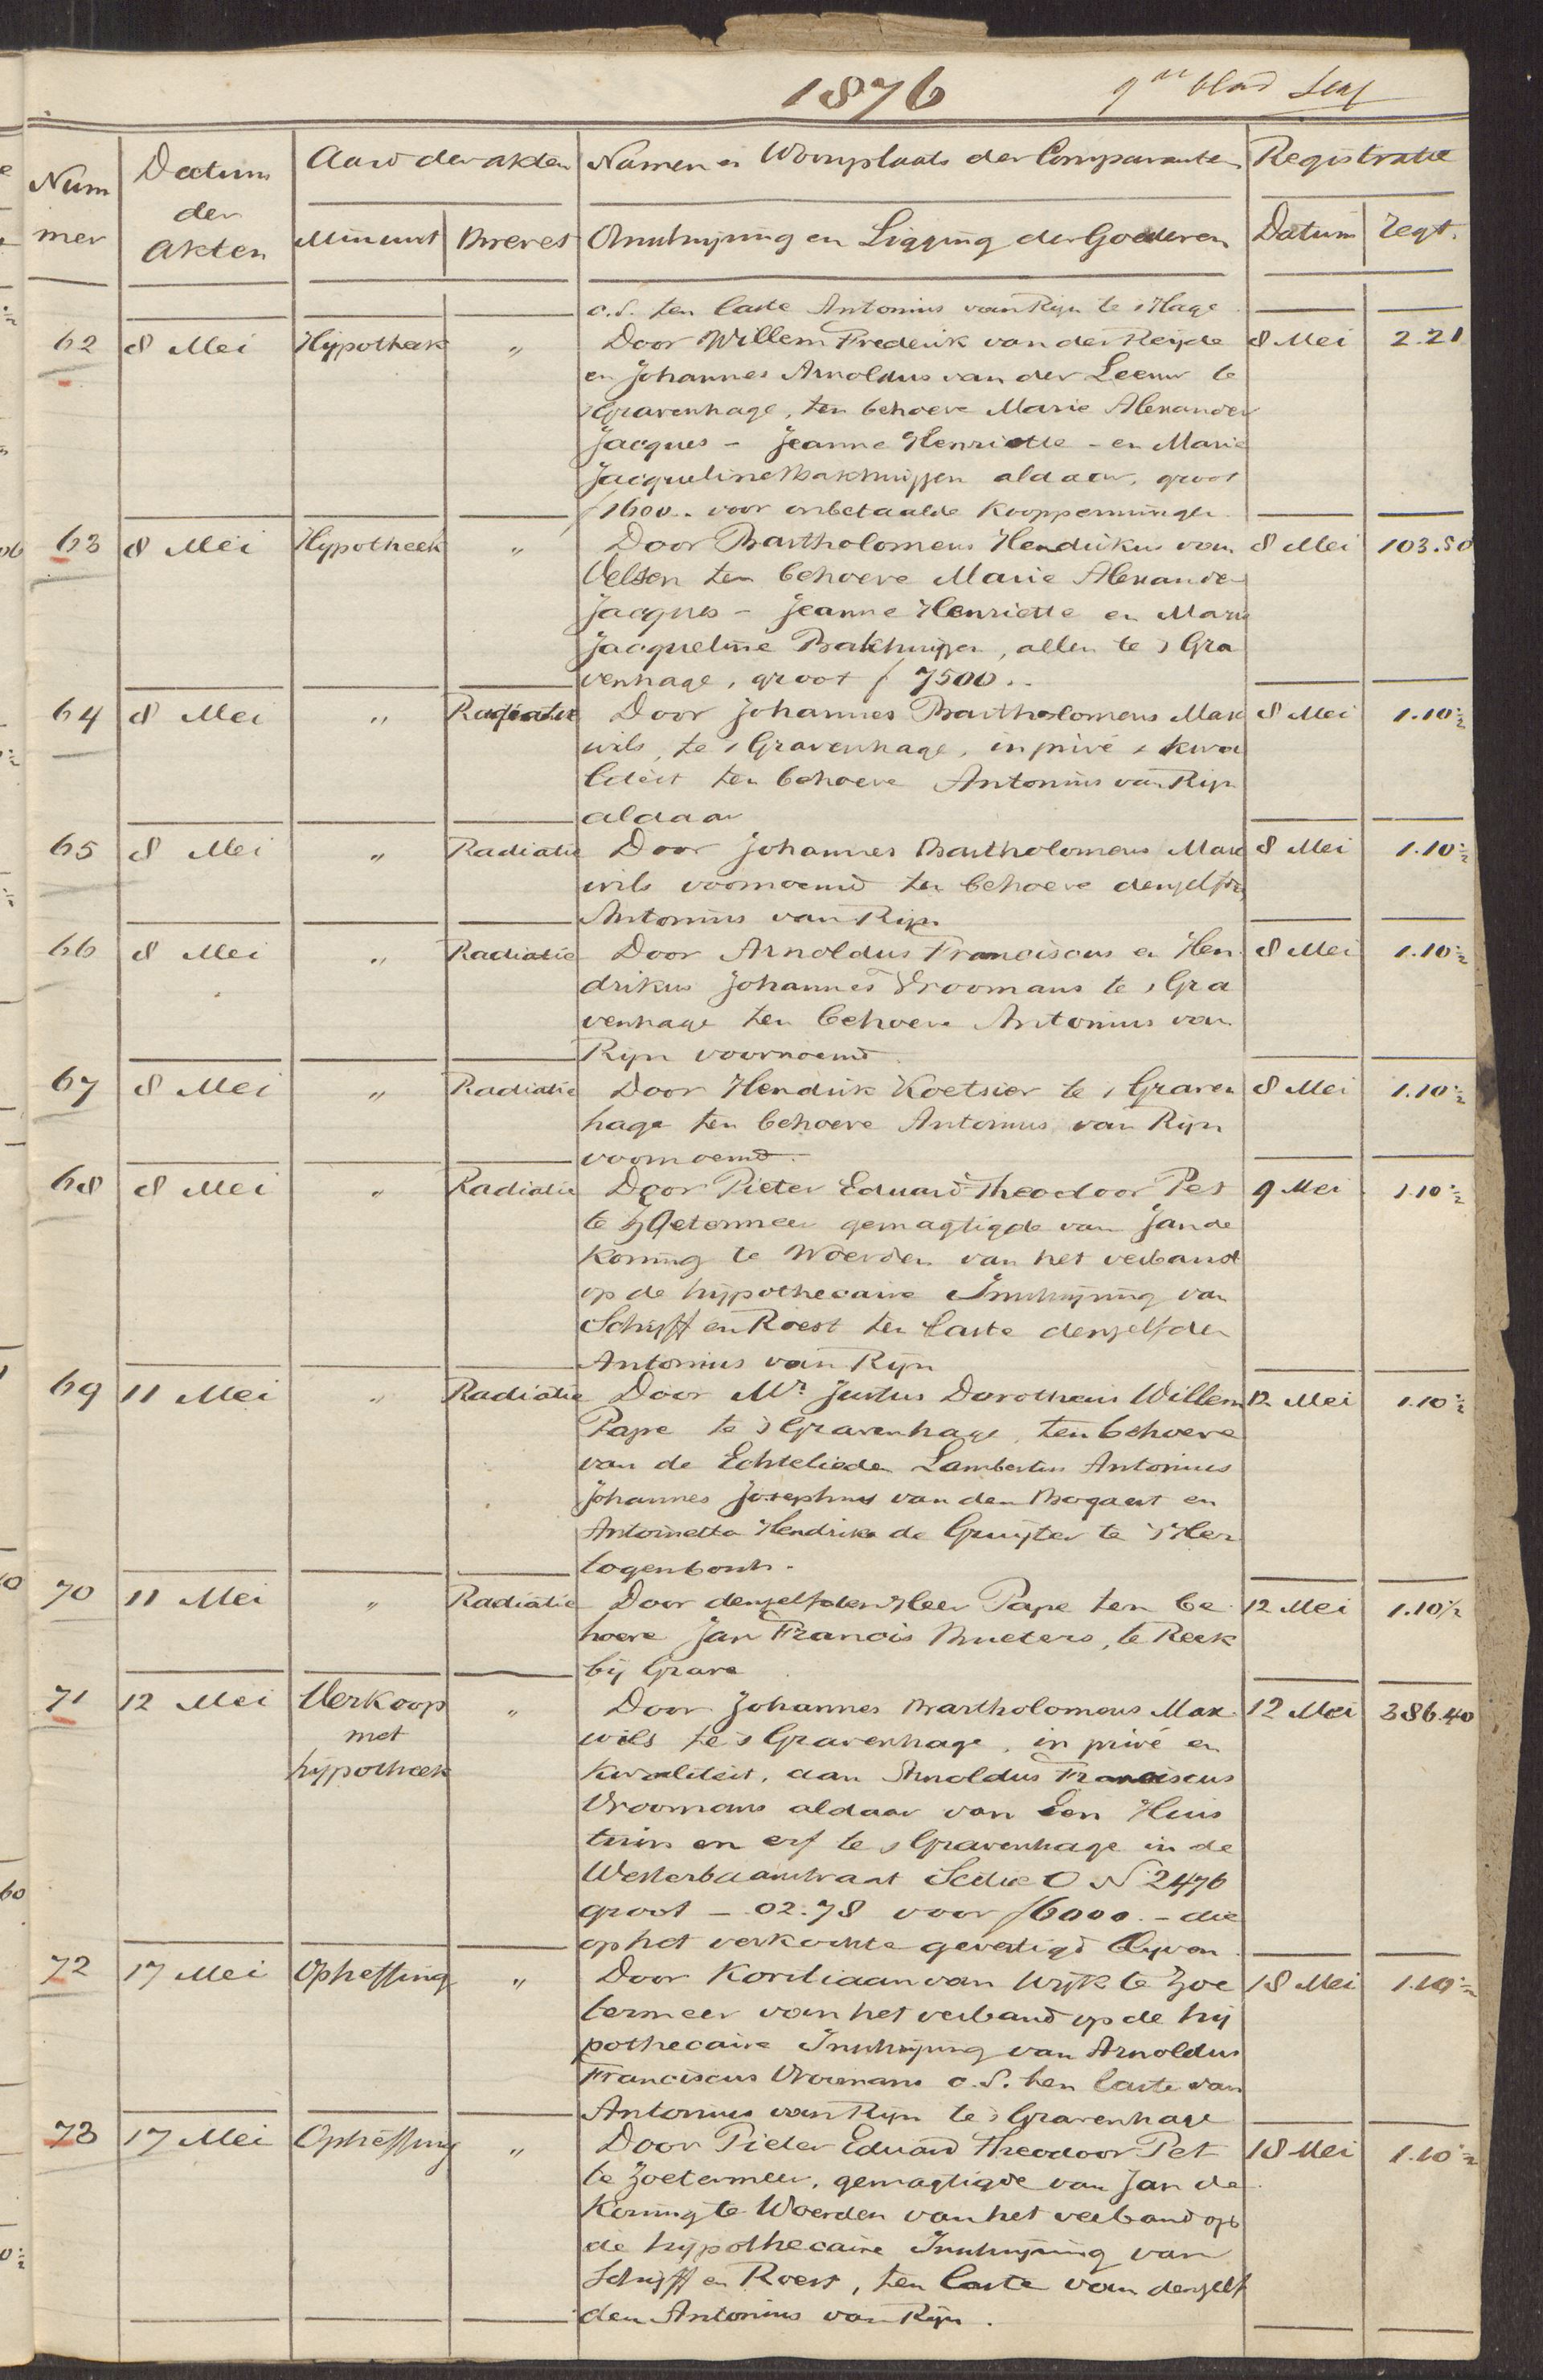 1876
9de blad
Num
mer
Datum
der
Akten
Aard der akten
Minuut Brevet
Namen en Woonplaats der Comparanten
Omschrijving en Ligging der Goederen
Registratie
Datum Regt.
c.s. ten laste Antonius van Rijn te 's Hage
62 8 Mei Hypotheek " Door Willem Frederik van der Heijde 8 Mei 2.21
en Johannes Arnoldus van der Leeuw te
'sGravenhage, ten behoeve Marie Alexander
Jacques - Jeanne Henriette - en Marie
Jacqueline Bakhuijzen aldaar, groot
f 1600.- voor onbetaalde Kooppenningen
63 8 Mei Hypotheek " Door Bartholomeus Hendrikus van 8 Mei 103.50
Velsen ten behoeve Marie Alexander
Jacques - Jeanne Henriette en Marie
Jacqueline Bakhuijzen, allen te 's Gra
venhage, groot f 7500.-
64 8 Mei " Radiatie Door Johannes Bartholomeus Max 8 Mei 1.10½
wils, te 's Gravenhage, in privé & kwa
liteit ten behoeve Antonius van Rijn
aldaar
65 8 Mei " Radiatie Door Johannes Bartholomeus Max 8 Mei 1.10½
wils voornoemd ten behoeve denzelfden
Antonius van Rijn
66 8 Mei " Radiatie Door Arnoldus Franciscus en Hen 8 Mei 1.10½
drikus Johannes Vroomans te 's Gra
venhage ten behoeve Antonius van
Rijn voornoemd
67 8 Mei " Radiatie Door Hendrik Koetsier te 's Graven 8 Mei 1.10½
hage ten behoeve Antonius van Rijn
voornoemd.
68 8 Mei " Radiatie Door Pieter Eduard Theodoor Pet 9 Mei 1.10½
te Zoetermeer gemagtigde van Jan de
Koning te Woerden van het verband
op de hypothecaire Inschrijving van
Schijff en Roest ten laste denzelfden
Antonius van Rijn
69 11 Mei " Radiatie Door Mr. Justus Dorotheus Willem 12 Mei 1.10½
Pape te 's Gravenhage, ten behoeve
van de Echtelieden Lambertus Antonius
Johannes Josephus van den Bogaert en
Antoinetta Hendrika de Gruijter te 's Her
togenbosch.
70 11 Mei " Radiatie Door denzelfden Heer Pape ten be 12 Mei 1.10½
hoeve Jan Francis Bueters, te Reek
bij Grave
71 12 Mei Verkoop " Door Johannes Bartholomeus Max 12 Mei 386.40
met wils te 's Gravenhage, in privé en
hypotheek kwaliteit, aan Arnoldus Franciscus
Vroomans aldaar van Een Huis
tuin en erf te 's Gravenhage in de
Westerbaanstraat Sectie O N 2476
groot - .02.78 voor f 6000.- die
op het verkochte gevestigd blijven
72 17 Mei Opheffing " Door Korstiaan van Wijk te Zoe 18 Mei 1.10½
termeer van het verband op de hij
pothecaire Inschrijving van Arnoldus
Franciscus Vroomans c.s. ten laste van
Antonius van Rijn te 's Gravenhage
73 17 Mei Opheffing " Door Pieter Eduard Theodoor Pet 18 Mei 1.10½
te Zoetermeer, gemagtigde van Jan de
Koning te Woerden van het verband op
de hypothecaire Inschrijving van
Schijff en Roest, ten laste van denzelf
den Antonius van Rijn.